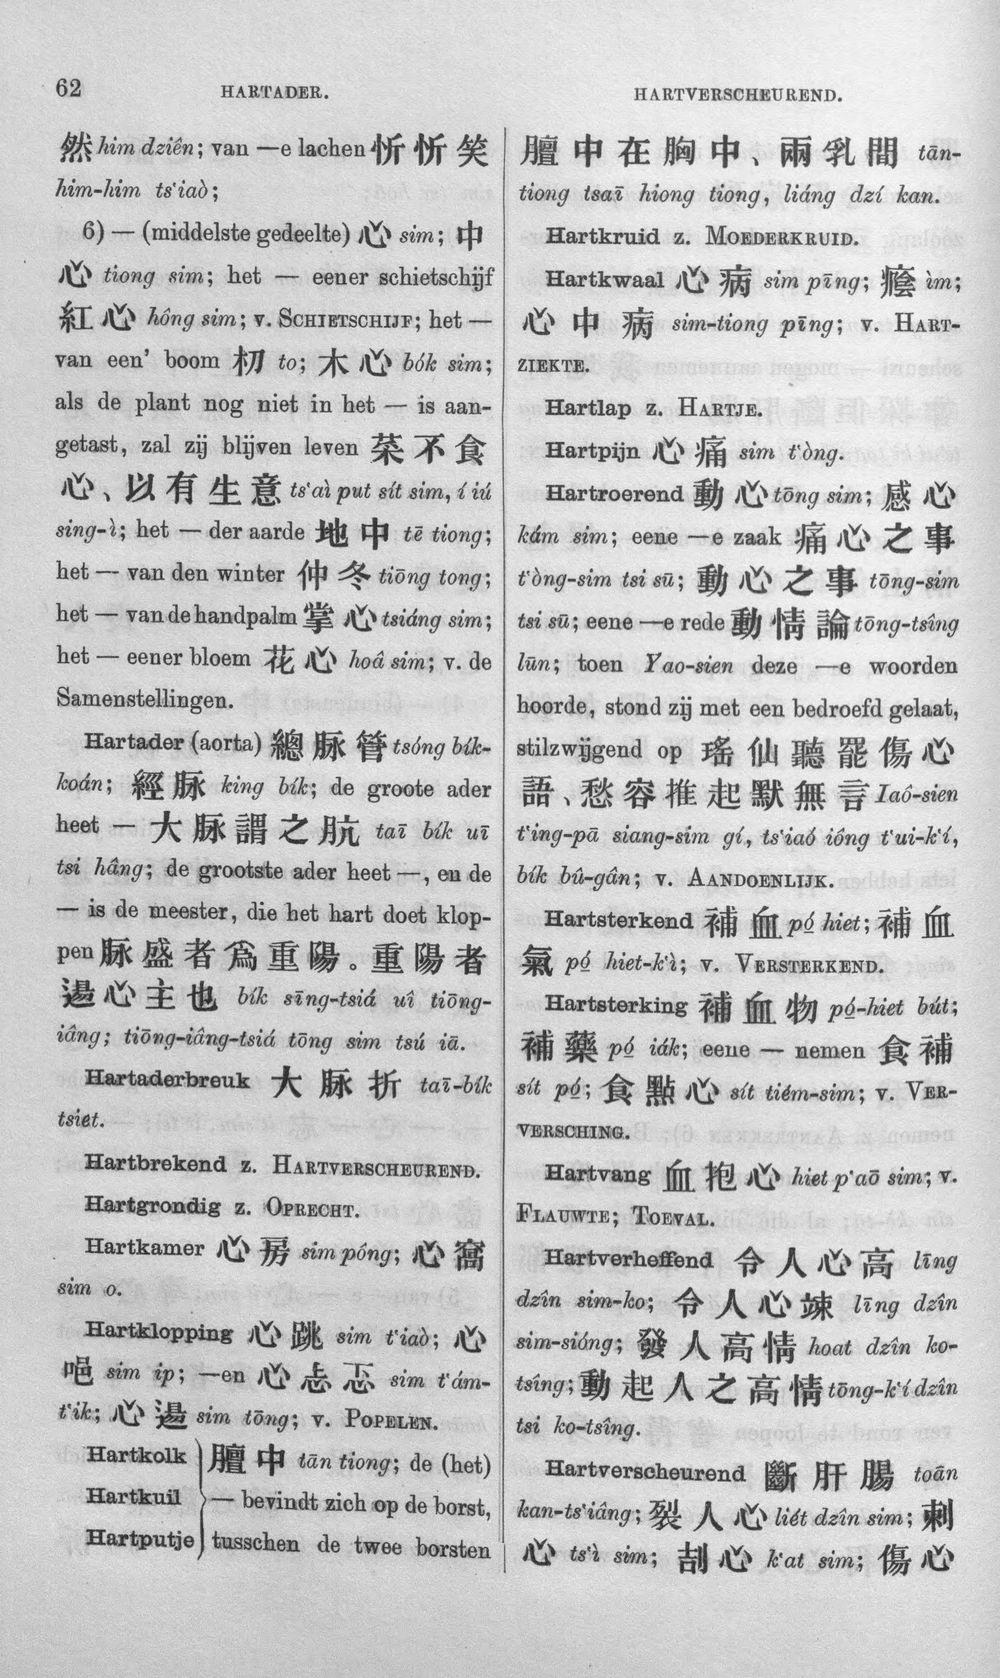 62
HARTADER.
HARTVERSCHEURENDE.
然 him dziên; van —e lachen 忻忻笑
him-him ts‘iaò;
6) — (middelste gedeelte) 心 sim; 中
心 tiong sim; het — eener schietschijf
紅心 hông sim; v. SCHIETSCHIJF; het —
van een’ boom 朷 to; 木心 bók sim;
als de plant nog niet in het — is aan-
getast, zal zij blijven leven 菜不食
心、以有生意 ts‘aì put sít sim, í iú
sing-ì; het — der aarde 地中 tē tiong;
het — van den winter 仲冬 tiōng tong;
het — van de handpalm 掌心 tsiáng sim;
het — eener bloem 花心 hoâ sim; v. de
Samenstellingen.
Hartader (aorta) 總脉管 tsóng bík-
koán; 經脉 king bík; de groote ader
heet — 大脉謂之肮 taī bík uī
tsi hâng; de grootste ader heet —, en de
— is de meester, die het hart doet klop-
pen 脉盛者爲重陽。重陽者
逿心主也 bík sīng-tsiá uî tiōng-
iâng; tiōng-iâng-tsiá tōng sim tsú iā.
Hartaderbreuk 大脉折 taī-bík
tsiet.
Hartbrekend z. HARTVERSCHEUREND.
Hartgrondig z. OPRECHT.
Hartkamer 心房 sim póng; 心窩
sim o.
Hartklopping 心跳 sim t‘iaò; 心
唈 sim ip; —en 心忐忑 sim t‘ám-
t‘ik; 心逿 sim tōng; v. POPELEN.
Hartkolk
Hartkuil
Hartputje
膻中 tān tiong; de (het)
— bevindt zich op de borst,
tusschen de twee borsten
膻中在胸中、兩乳間 tān-
tiong tsaī hiong tiong, liáng dzí kan.
Hartkruid z. MOEDERKRUID.
Hartkwaal 心病 sim pīng; 癊 ìm;
心中病 sim-tiong pīng; v. HART-
ZIEKTE.
Hartlap z. HARTJE.
Hartpijn 心痛 sim t‘òng.
Hartroerend 動心 tōng sim; 感心
kám sim; eene —e zaak 痛心之事
t‘òng-sim tsi sū; 動心之事 tōng-sim
tsi sū; eene —e rede 動情論 tōng-tsîng
lūn; toen Yao-sien deze —e woorden
hoorde, stond zij met een bedroefd gelaat,
stilzwijgend op 瑤仙聽罷傷心
語、愁容推起默無言 Iaô-sien
t‘ing-pā siang-sim gí, ts‘iaó iông t‘ui-k‘í,
bík bû-gân; v. AANDOENLIJK.
Hartsterkend 補血 pó hiet; 補血
氣 pó hiet-k‘ì; v. VERSTERKEND.
Hartsterking 補血物 pó-hiet bút;
補藥 pó iák; eene — nemen 食補
sít pó; 食點心 sít tiém-sim; v. VER-
VERSCHING.
Hartvang 血抱心 hiet p‘aō sim; v.
FLAUWTE; TOEVAL.
Hartverheffend 令人心高 līng
dzîn sim-ko; 令人心竦 līng dzîn
sim-sióng; 發人高情 hoat dzîn ko-
tsîng; 動起人之高情 tōng-k‘í dzîn
tsi ko-tsîng.
Hartverscheurend 斷肝腸 toān
kan-ts‘iâng; 裂人心 liét dzîn sim; 刺
心 ts‘ì sim; 刮心 k‘at sim; 傷心